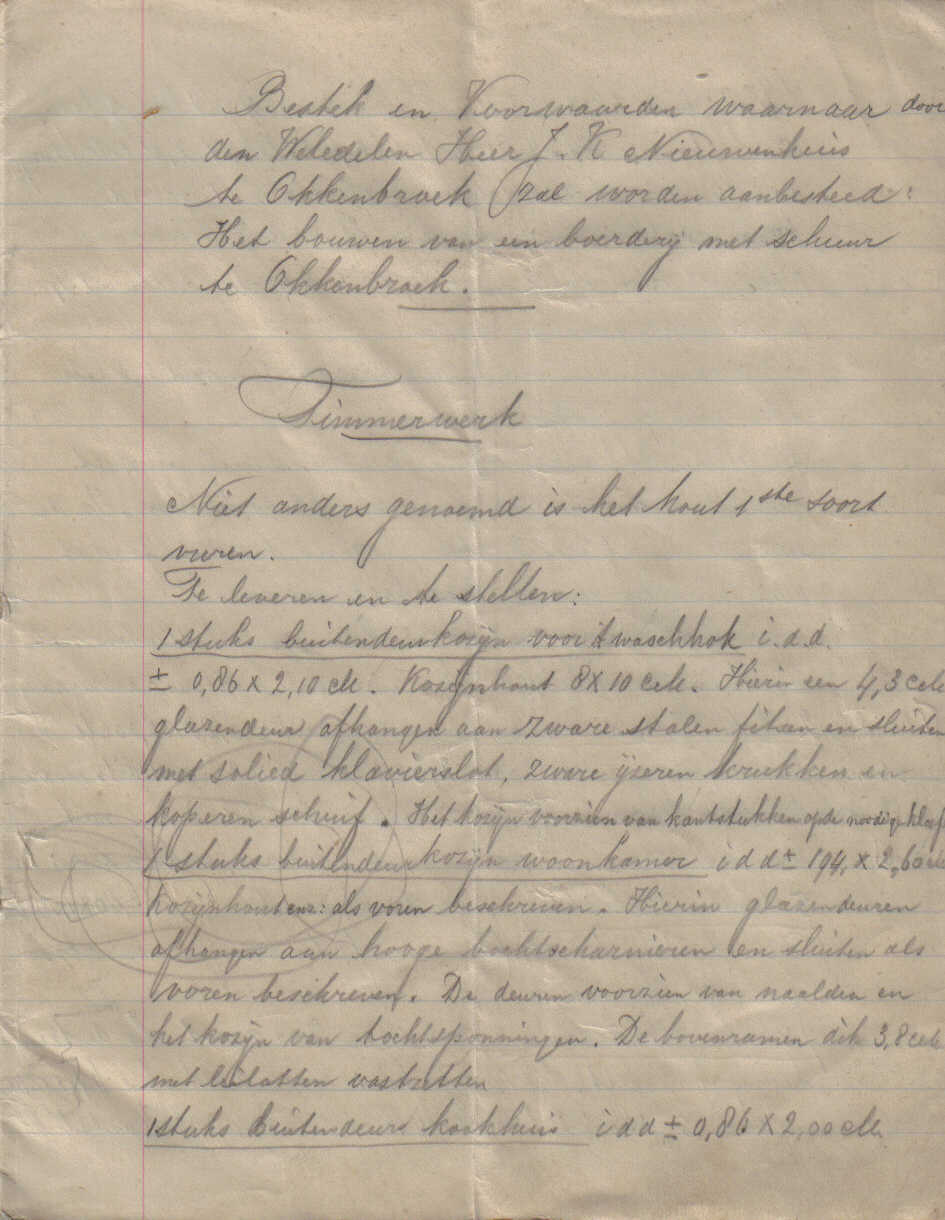 Bestek en Voorwaarden waarnaar door
den Weledelen Heer J. K Nieuwenhuis
te Okkenbroek zal worden aanbesteed:
Het bouwen van een boerderij met schuur
te Okkenbroek.
Timmerwerk
Niet anders genoemd is het hout 1ste soort
vuren.
Te leveren en te stellen:
1 stuks buitendeurkozijn voor 't waschhok i.d.d.
± 0,86 x 2,10 cM. Kozijnhout 8 x 10 cM. Hierin een 4,3 cM
glazendeur afhangen aan zware stalen fitsen en sluiten
met solied klavierslot, zware ijzeren krukken en
koperen schuif. Het kozijn voorzien van kantstukken op de noodige
1 stuks buitendeurkozijn woonkamer i d d ± 194, x 2,60 cM
kozijnhout enz: als voren beschreven. Hierin glazendeuren
afhangen aan hooge bochtscharnieren en sluiten als
voren beschreven. De deuren voorzien van naalden en
het kozijn van tochtsponningen. De bovenramen dik 3,8 cM
met latten vastzetten
1 stuks buitendeurs kookhuis i d d ± 0,86 x 2,00 cM.